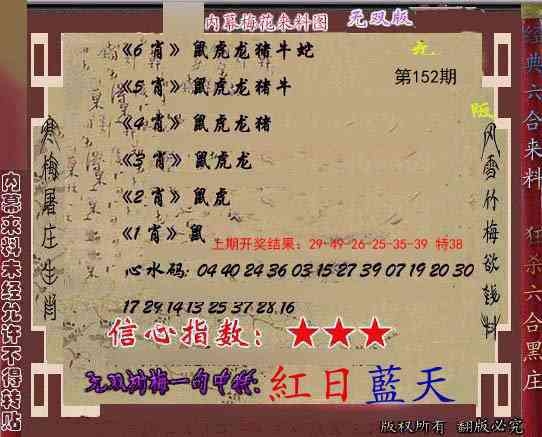 内幕梅花来料图 无双版
《6 肖》 鼠虎龙猪牛蛇
《5 肖》 鼠虎龙猪牛
《4 肖》 鼠虎龙猪
《3 肖》 鼠虎龙
《2 肖》 鼠虎
《1 肖》 鼠
第152期
上期开奖结果：29-49-26-25-35-39 特38
心水码: 04 40 24 36 03 15 27 39 07 19 20 30
17 29 14 13 25 37 28 16
信心指数：★★★
一句中特:
紅日藍天
寒梅屠庄生肖
风雪竹梅欲钱料
内幕来料未经允许不得转贴
经典六合来料 狂杀六合黑庄
版权所有 翻版必究